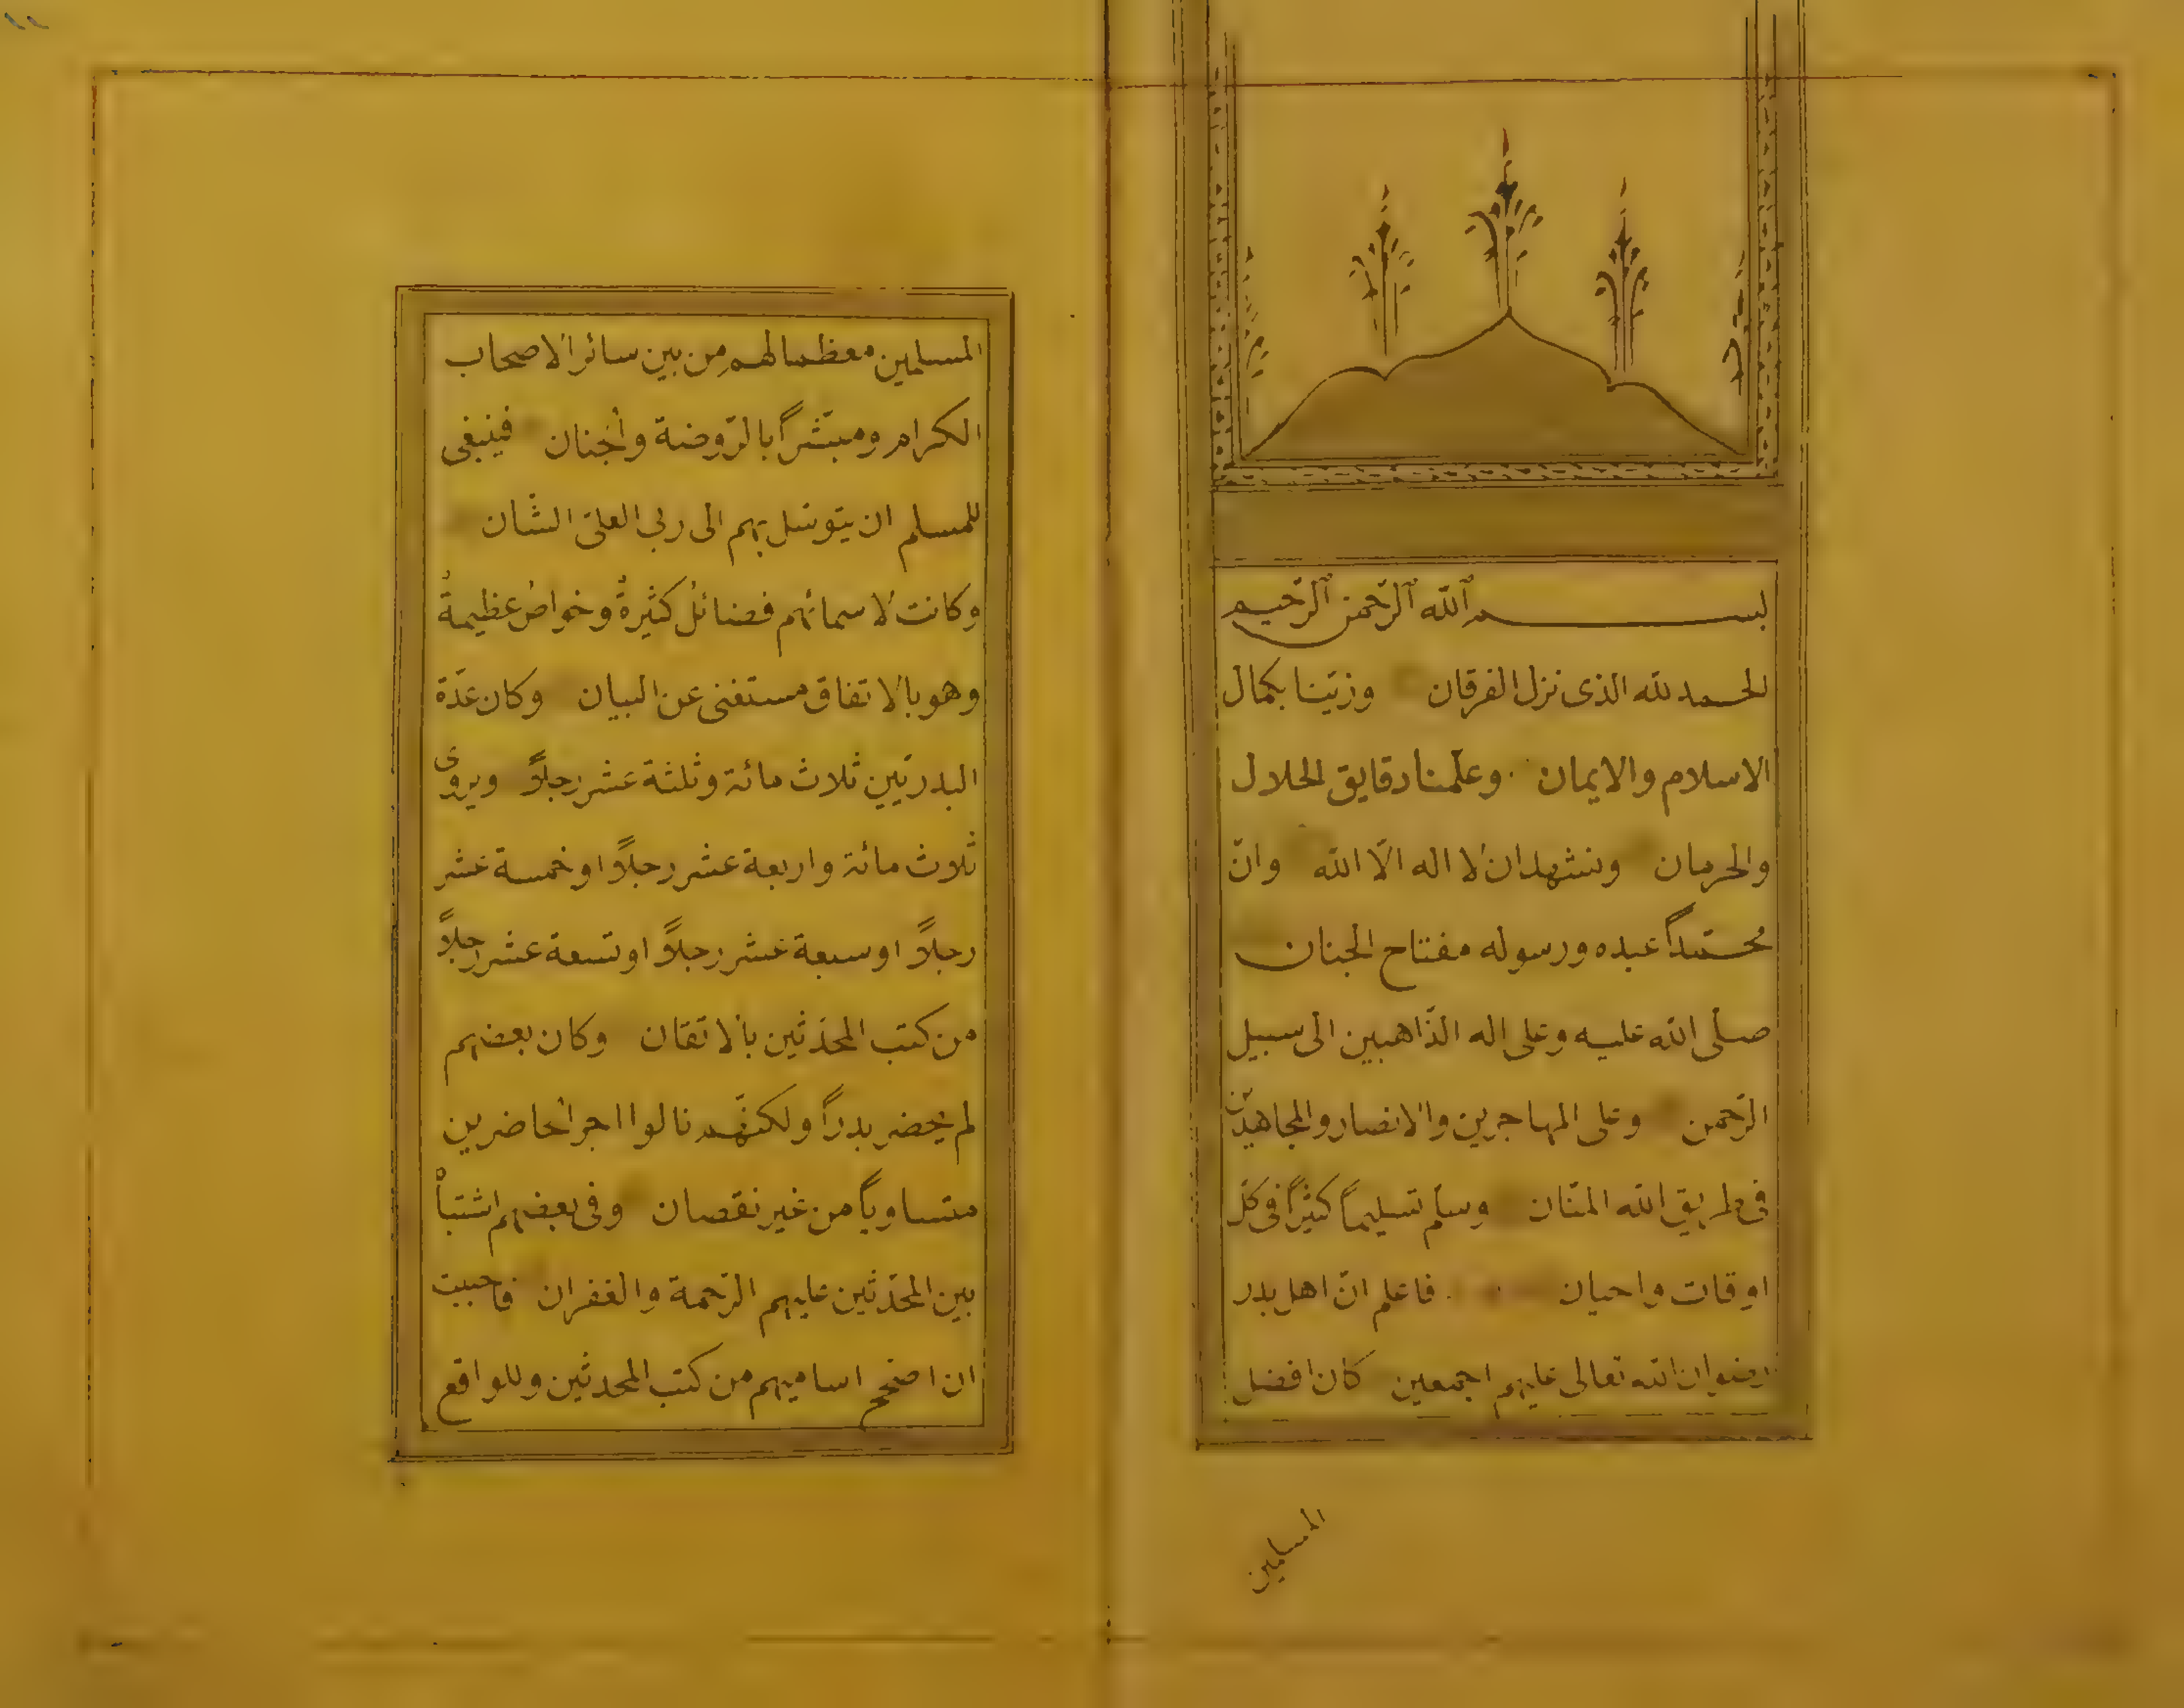 بسم الله الرحمن الرحيم
الحمد لله الذى نزل الفرقان وزيّنا بكمال
الاسلام والايمان وعلّمنا دقايق الحلال
والحرمان ونشهد ان لا اله الّا الله وانّ
محمّداً عبده ورسوله مفتاح الجنان
صلى الله عليه وعلى اله الذّاهبين الى سبيل
الرّحمن وعلى المهاجرين والانصار والمجاهدين
فى طريق الله المنّان وسلّم تسليماً كثيراً فى كلّ
اوقات واحيان فاعلم انّ اهل بدر
رضوان الله تعالى عليهم اجمعين كان افضل
المسلمين
المسلمين معظما لهم من بين سائر الاصحاب
الكرام ومبشّراً بالرّوضة والجنان فينبغى
للمسلم ان يتوسّل بهم الى ربى العلىّ الشّان
وكانت لاسمائهم فضائل كثيرةٌ وخواصّ عظيمةٌ
وهو بالاتفاق مستغنى عن البيان وكان عدّة
البدريّين ثلاث مائة وثلثة عشر رجلاً ويروى
ثلاث مائة واربعة عشر رجلاً او خمسة عشر
رجلاً او سبعة عشر رجلاً او تسعة عشر رجلاً
من كتب المحدّثين بالاتقان وكان بعضهم
لم يحضر بدراً ولكنّهم نالوا اجر الحاضرين
متساوياً من غير نقصان وفى بعضهم اشتباهٌ
بين المحدّثين عليهم الرّحمة والغفران فاحببت
ان اصحّح اساميهم من كتب المحدثين وللواقع